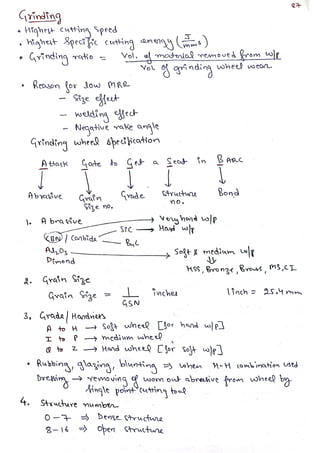 27
Grinding
• Highest cutting speed
• highest specific cutting energy (J/mm³)
• Grinding ratio = Vol. of material removed from w/p
Vol of grinding wheel wear
• Reason for low MRR
– Size effect
– welding effect
– Negative rake angle
Grinding wheel specification
Attack Gate to Get a Seat in BARC
↓ ↓ ↓ ↓ ↓
Abrasive Grain Grade Structure Bond
Size no. no.
1. Abrasive → Very hard w/p
SiC → Hard w/p
CBN / Carbide B₄C
Al₂O₃ → Soft & medium w/p
Dimond ⇓
HSS, Bronze, Brass, MS, C.I
2. Grain Size
Grain Size = 1 inches 1 inch = 25.4 mm
GSN
3. Grade/Hardness
A to H → Soft wheel [for hard w/p]
I to P → medium wheel
Q to Z → Hard wheel [for soft w/p]
• Rubbing, glazing, blunting ⇒ when H-H combination used
Dressing → removing of worn out abrasive from wheel by
single point cutting tool
4. Structure number
0–7 ⇒ Dense structure
8–16 ⇒ Open structure